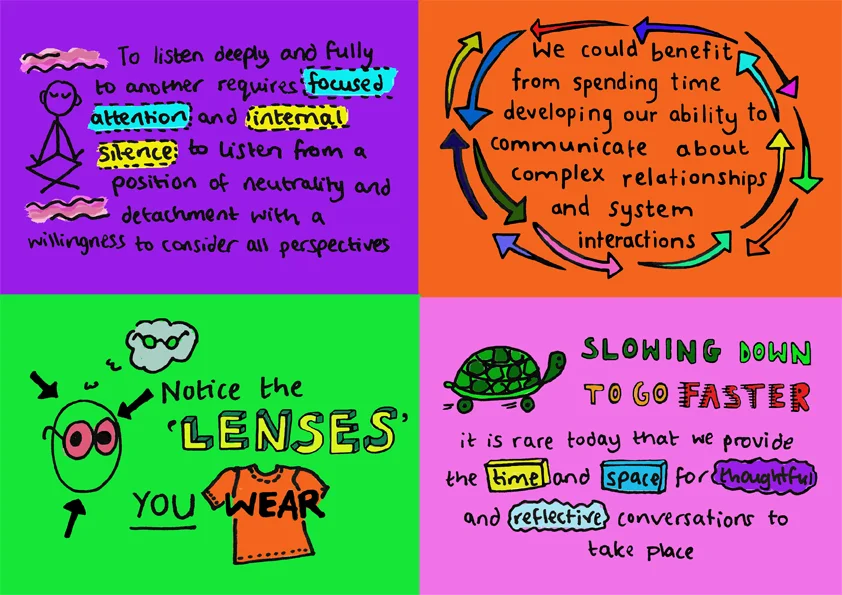 To listen deeply and fully
to another requires focused
attention and internal
silence to listen from a
position of neutrality and
detachment with a
willingness to consider all perspectives
We could benefit
from spending time
developing our ability to
communicate about
complex relationships
and system
interactions
Notice the
'LENSES'
YOU WEAR
SLOWING DOWN
TO GO FASTER
it is rare today that we provide
the time and space for thoughtful
and reflective conversations to
take place